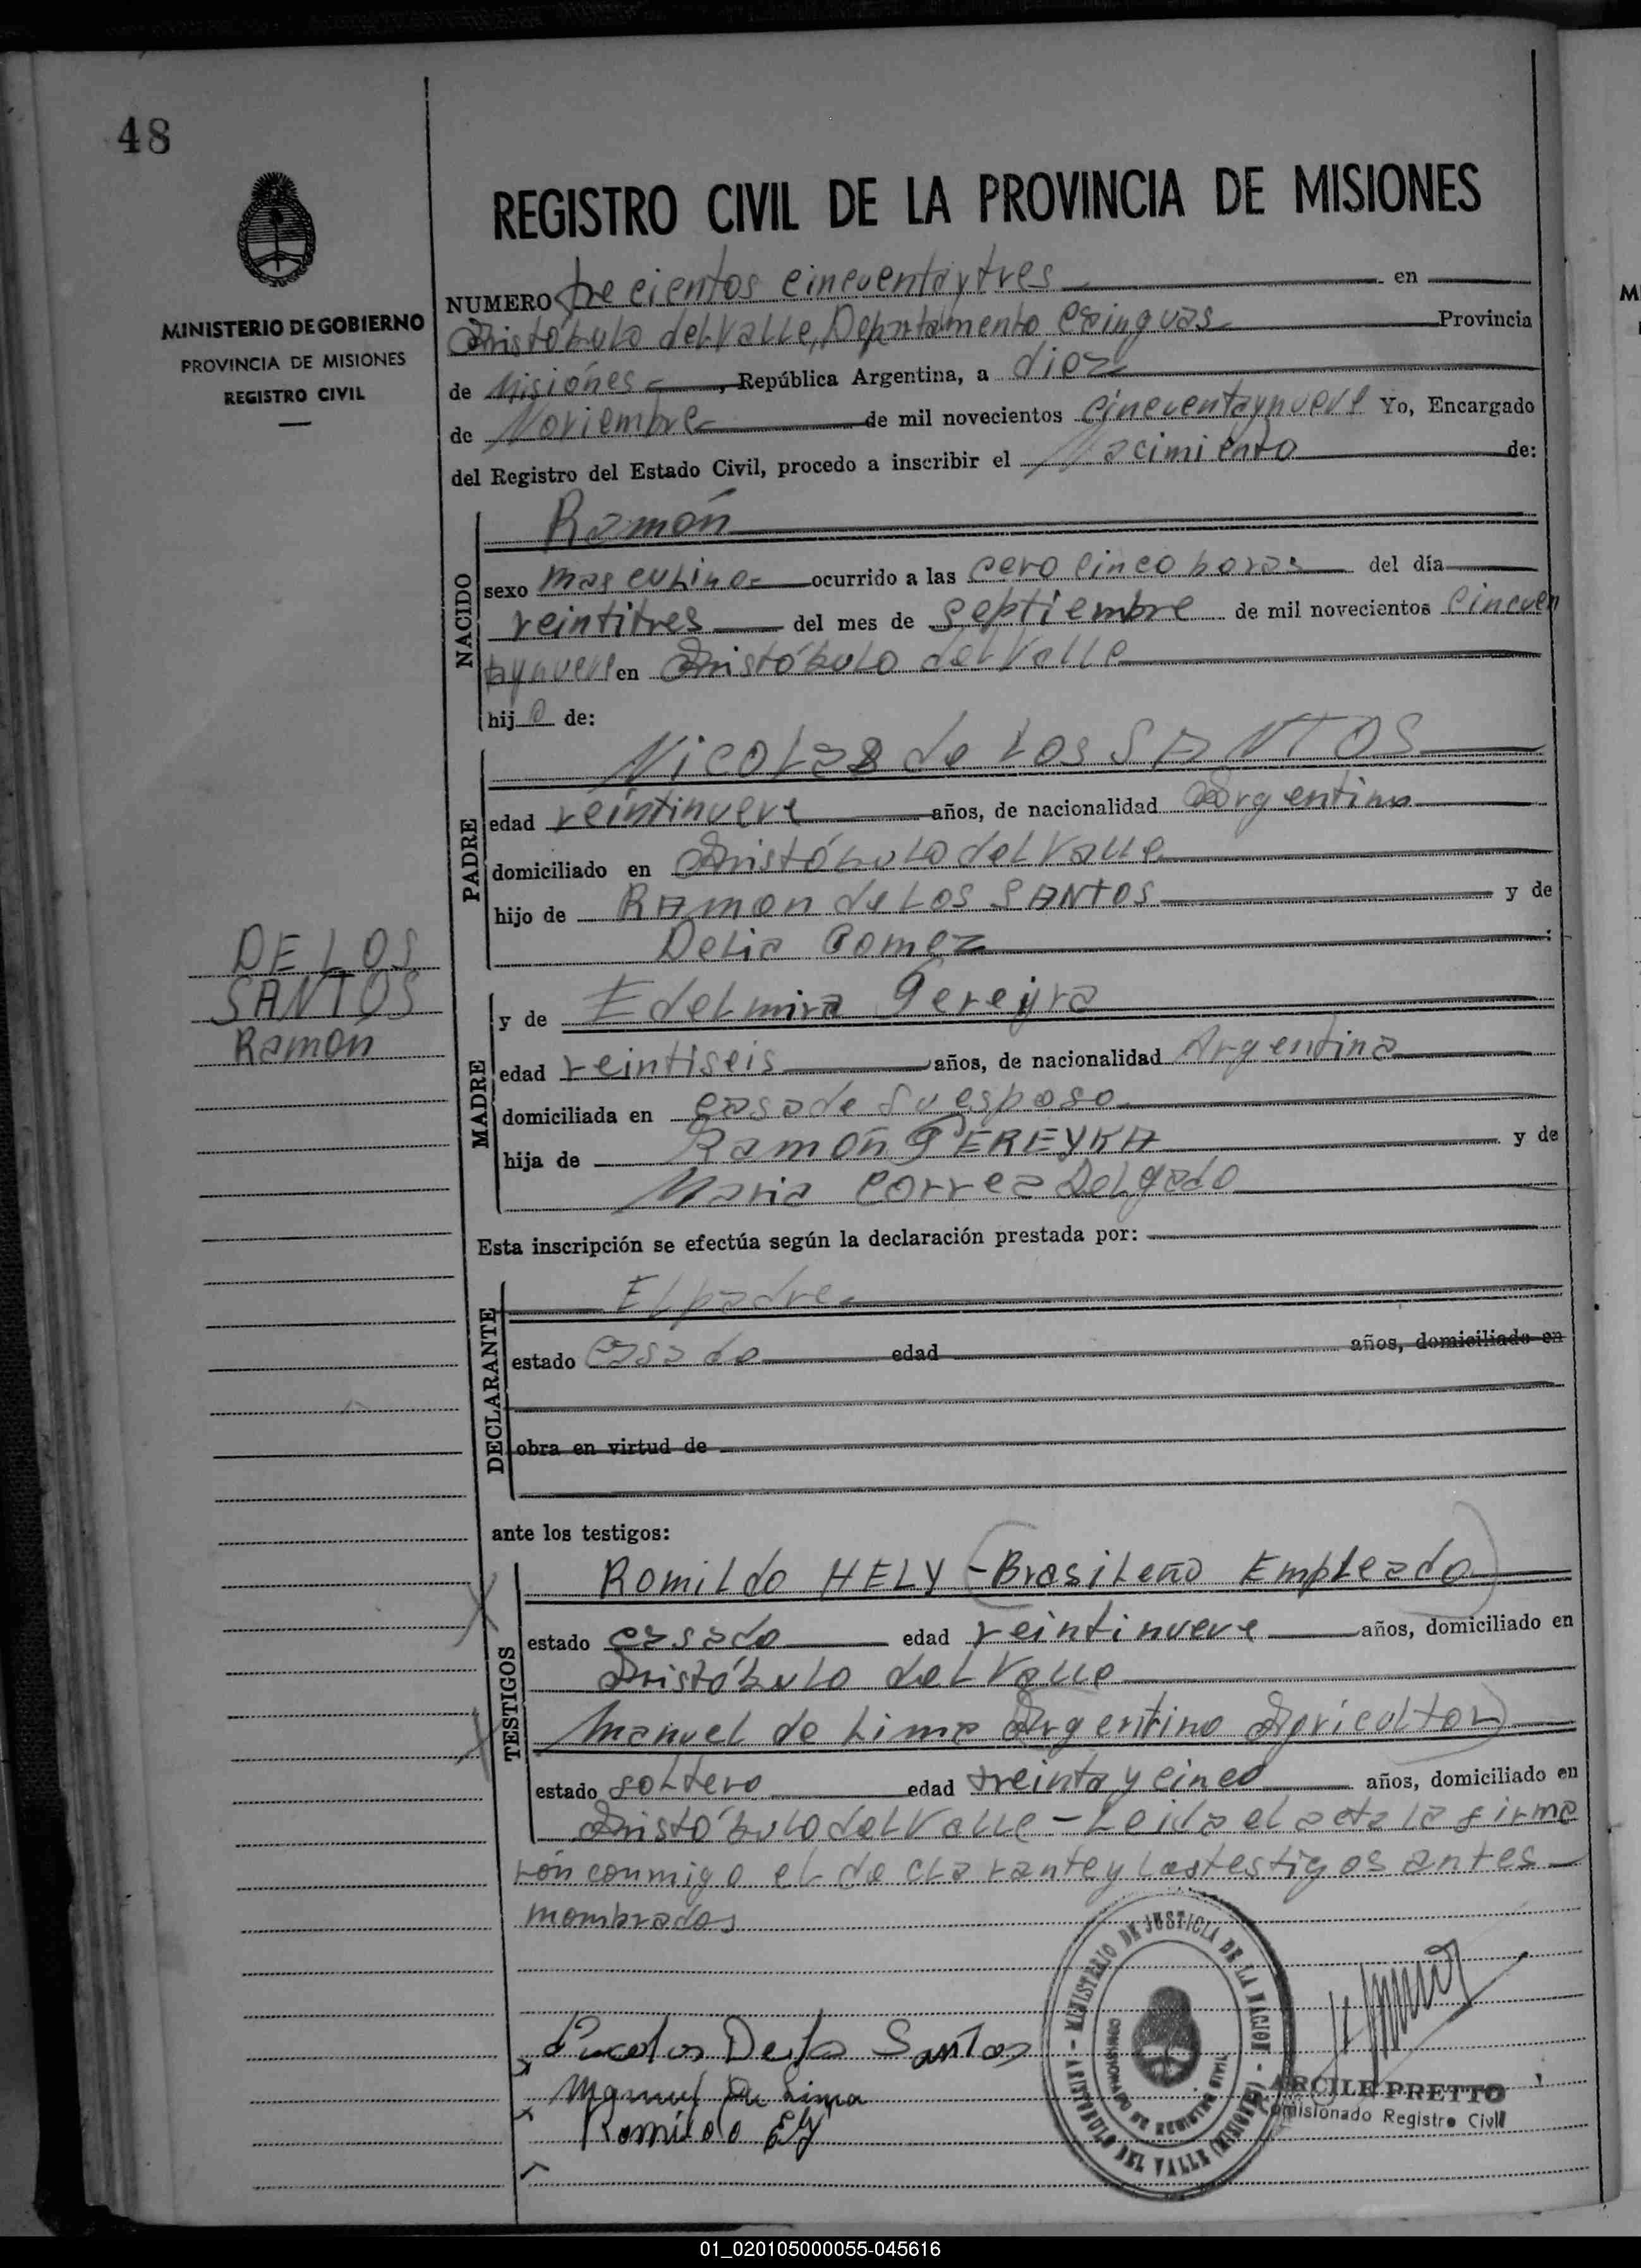 48
REGISTRO CIVIL DE LA PROVINCIA DE MISIONES
MINISTERIO DE GOBIERNO
PROVINCIA DE MISIONES
REGISTRO CIVIL
NUMERO trecientos cincuentaytres en
Aristóbulo del Valle, Departamento Cainguas Provincia
de Misiones, República Argentina, a diez
de Noviembre de mil novecientos cincuentaynueve Yo, Encargado
del Registro del Estado Civil, procedo a inscribir el Nacimiento de:
NACIDO
Ramón
sexo masculino ocurrido a las cero cinco horas del día
veintitres del mes de septiembre de mil novecientos cincuen
taynueve en Aristóbulo del Valle
hijo de:
PADRE
Nicolas de Los SANTOS
edad veintinueve años, de nacionalidad Argentino
domiciliado en Aristóbulo del Valle
hijo de RAmon de Los SANtOS y de
Delia Gomez
DE LOS
SANTOS
Ramón
MADRE
y de Edelmira Pereyra
edad veintiseis años, de nacionalidad Argentina
domiciliada en casa de su esposo
hija de Ramón PEREYRA y de
Maria Correa Delgado
Esta inscripción se efectúa según la declaración prestada por:
DECLARANTE
El padre
estado casado edad años, domiciliado en
obra en virtud de
ante los testigos:
TESTIGOS
Romildo HELY (-Brasileño Empleado)
estado casado edad veintinueve años, domiciliado en
Aristóbulo del Valle
Manuel de Lima (Argentino Agricultor)
estado soltero edad treinta y cinco años, domiciliado en
Aristóbulo del Valle - Leida el acta la firma
rón conmigo el declarante y los testigos antes
mombrados
De los Santos
Manuel De Lima
Romildo Ely
MINISTERIO DE JUSTICIA DE LA NACION - ARISTOBULO DEL VALLE (MISIONES)
COMISIONADO DE REGISTRO CIVIL
ARCILE PRETTO
Comisionado Registro Civil
01_020105000055-045616